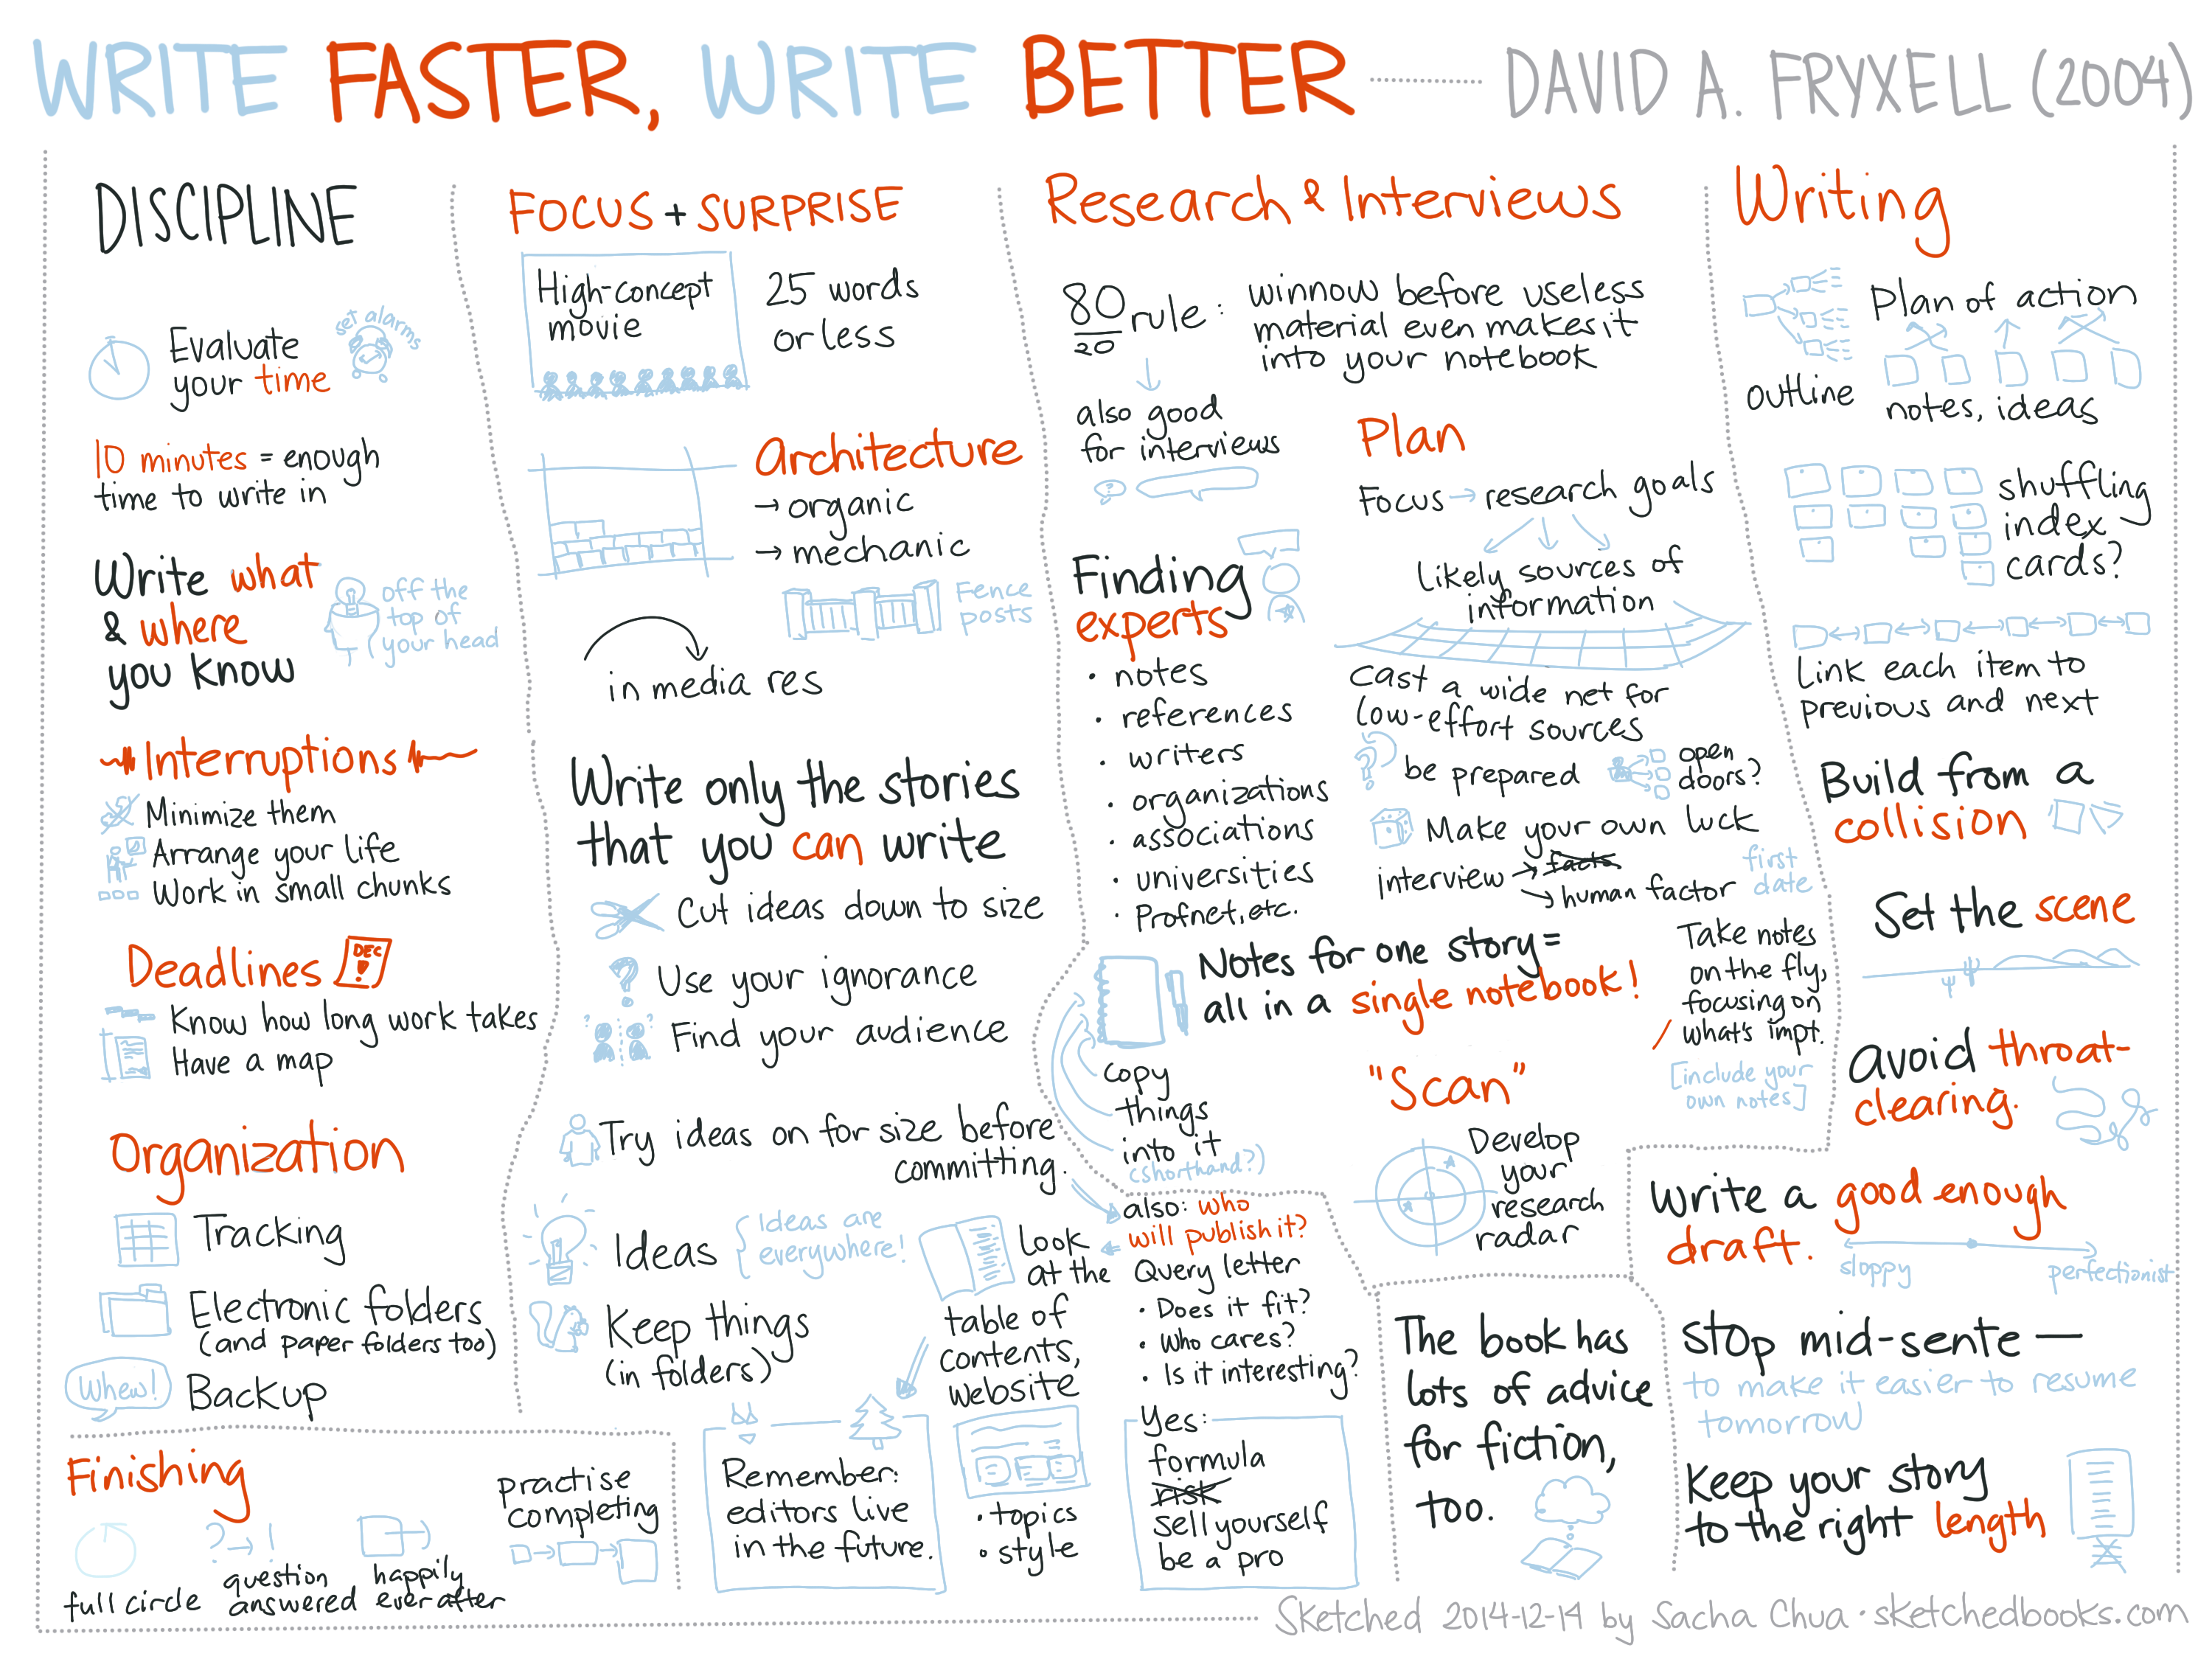 WRITE FASTER, WRITE BETTER
DAVID A. FRYXELL (2004)
DISCIPLINE
Evaluate
your time
set alarms
10 minutes = enough
time to write in
Write what
& where
you know
off the
top of
your head
Interruptions
Minimize them
Arrange your life
Work in small chunks
Deadlines
DEC
!
Know how long work takes
Have a map
Organization
Tracking
Electronic folders
(and paper folders too)
Whew!
Backup
Finishing
full circle
? → !
question
answered
happily
ever after
practise
completing
FOCUS + SURPRISE
High-concept
movie
25 words
or less
Architecture
→ organic
→ mechanic
Fence
posts
in media res
Write only the stories
that you can write
Cut ideas down to size
?
Use your ignorance
? ?
Find your audience
Try ideas on for size before
committing.
Ideas
Ideas are
everywhere!
Keep things
(in folders)
Look
at the
table of
contents,
website
• topics
• style
Remember:
editors live
in the future.
also: who
will publish it?
Query letter
• Does it fit?
• Who cares?
• Is it interesting?
Yes:
formula
risk
sell yourself
be a pro
Research & Interviews
80
20
rule:
winnow before useless
material even makes it
into your notebook
also good
for interviews
?
Plan
Focus → research goals
Likely sources of
information
Cast a wide net for
low-effort sources
?
be prepared
open
doors?
Make your own luck
interview → facts
→ human factor
first
date
Finding
experts
• notes
• references
• writers
• organizations
• associations
• universities
• Profnet, etc.
Notes for one story =
all in a single notebook!
Take notes
on the fly,
focusing on
what's impt.
[include your
own notes]
copy
things
into it
(shorthand?)
"Scan"
Develop
your
research
radar
The book has
lots of advice
for fiction,
too.
Writing
Plan of action
outline
notes, ideas
shuffling
index
cards?
Link each item to
previous and next
Build from a
collision
Set the scene
avoid throat-
clearing.
Write a good enough
draft.
sloppy
perfectionist
Stop mid-sente—
to make it easier to resume
tomorrow
Keep your story
to the right length
Sketched 2014-12-14 by Sacha Chua · sketchedbooks.com